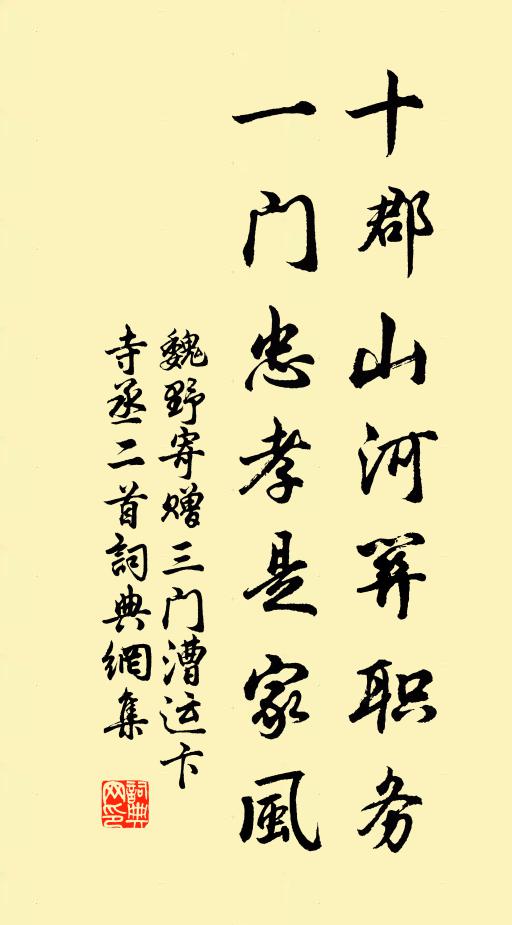 十郡山河關职务
一门忠孝是家風
魏野寄赠三门漕运卞
寺丞二首詞典網集
詞典
网印